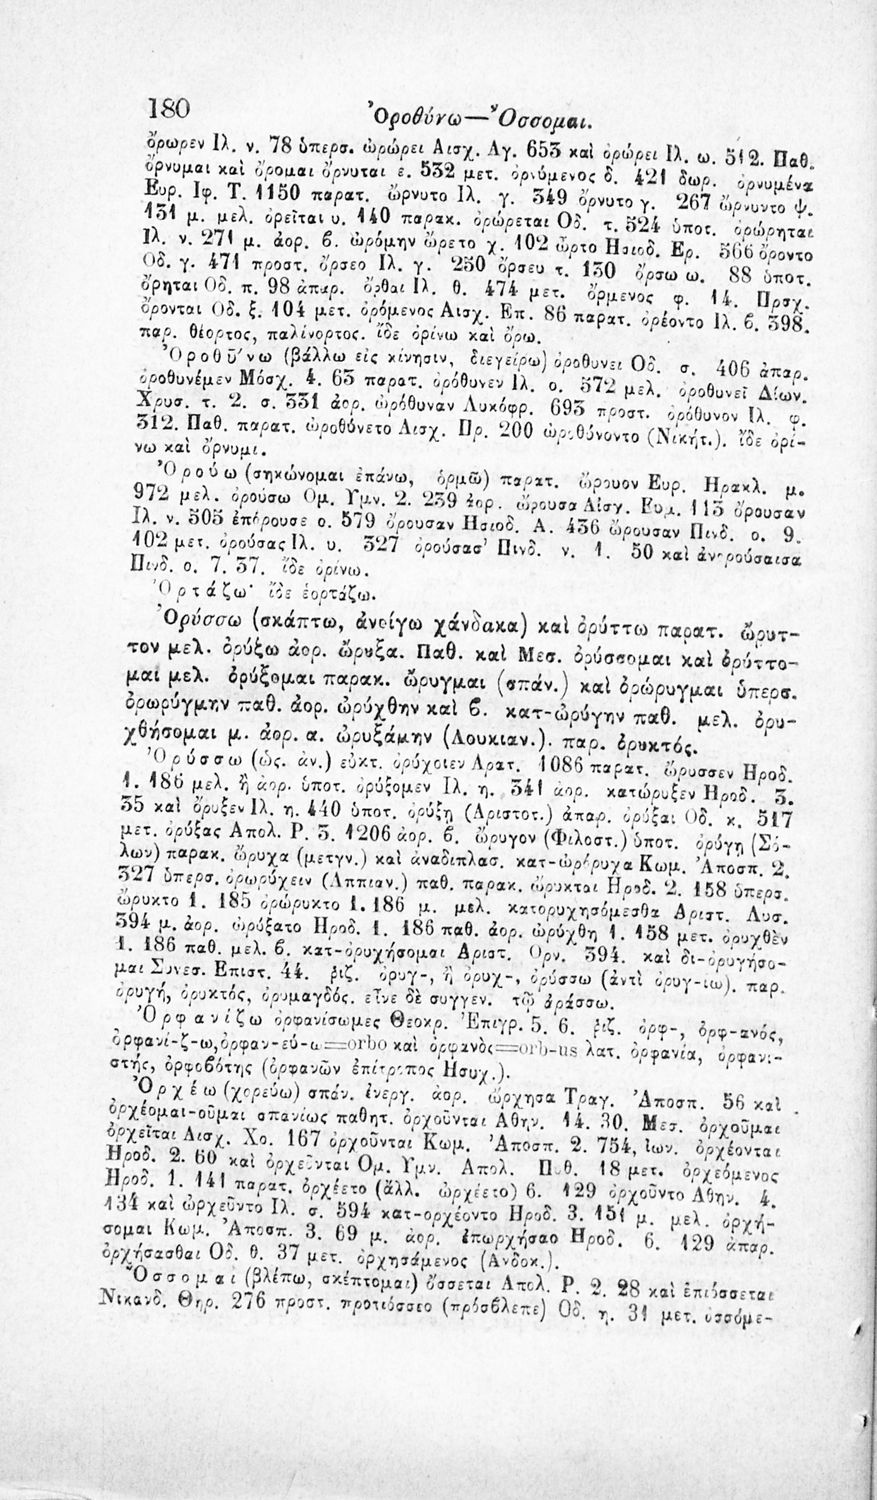 180
Ὀροθύνω—Ὄσσομαι.
ὄρωρεν Ιλ. ν. 78 ὑπερσ. ὠρώρει Αισχ. Αγ. 653 καὶ ὀρώρει Ιλ. ω. 512. Παθ.
ὄρνυμαι καὶ ὄρομαι ὄρνυται ε. 532 μετ. ὀρνύμενος δ. 421 δωρ. ὀρνυμένα
Ευρ. Ιφ. Τ. 1150 παρατ. ὤρνυτο Ιλ. γ. 349 ὄρνυτο γ. 267 ὤρνυντο ψ.
131 μ. μελ. ὀρεῖται υ. 140 παρακ. ὀρώρεται Οδ. τ. 524 ὑποτ. ὀρώρηται
Ιλ. ν. 271 μ. ἀορ. ϐ. ὠρόμην ὤρετο χ. 102 ὦρτο Ησιοδ. Ερ. 566 ὄροντο
Οδ. γ. 471 προστ. ὄρσεο Ιλ. γ. 250 ὄρσευ τ. 130 ὄρσω ω. 88 ὑποτ.
ὄρηται Οδ. π. 98 ἀπαρ. ὄρθαι Ιλ. θ. 474 μετ. ὄρμενος φ. 14. Πρσχ.
ὄρονται Οδ. ξ. 104 μετ. ὀρόμενος Αισχ. Επ. 86 παρατ. ὀρέοντο Ιλ. ϐ. 398.
παρ. θέορτος, παλίνορτος. ἴδε ὀρίνω καὶ ὄρω.
Ὀροθῡ́νω (βάλλω εἰς κίνησιν, διεγείρω) ὀροθυνει Οδ. σ. 406 ἀπαρ.
ὀροθυνέμεν Μόσχ. 4. 63 παρατ. ὀρόθυνεν Ιλ. ο. 572 μελ. ὀροθυνεῖ Δίων.
Χρυσ. τ. 2. σ. 331 ἀορ. ὠρόθυναν Λυκόφρ. 693 προστ. ὀρόθυνον Ιλ. φ.
312. Παθ. παρατ. ὠροθύνετο Αισχ. Πρ. 200 ὠροθύνοντο (Νικήτ.). ἴδε ὀρί-
νω καὶ ὄρνυμι.
Ὀρούω (σηκώνομαι ἐπάνω, ὁρμῶ) παρατ. ὤρουον Ευρ. Ηρακλ. μ.
972 μελ. ὀρούσω Ομ. Υμν. 2. 239 ἀορ. ὤρουσα Αἰσχ. Ευμ. 113 ὄρουσαν
Ιλ. ν. 505 ἐπόρουσε ο. 579 ὄρουσαν Ησιοδ. Α. 436 ὤρουσαν Πινδ. ο. 9.
102 μετ. ὀρούσας Ιλ. υ. 327 ὀρούσασ’ Πινδ. ν. 1. 50 καὶ ἀνορούσαισα
Πινδ. ο. 7. 37. ἴδε ὀρίνω.
Ὀρτάζω· ἴδε ἑορτάζω.
Ὀρύσσω (σκάπτω, ἀνοίγω χάνδακα) καὶ ὀρύττω παρατ. ὤρυτ-
τον μελ. ὀρύξω ἀορ. ὤρυξα. Παθ. καὶ Μεσ. ὀρύσσομαι καὶ ὀρύττο-
μαι μελ. ὀρύξομαι παρακ. ὤρυγμαι (σπάν.) καὶ ὀρώρυγμαι ὑπερσ.
ὀρωρύγμην παθ. ἀορ. ὠρύχθην καὶ ϐ. κατ-ωρύγην παθ. μελ. ὀρυ-
χθήσομαι μ. ἀορ. α. ὠρυξάμην (Λουκιαν.). παρ. ὀρυκτός.
Ὀρύσσω (ὡς. ἀν.) εὐκτ. ὀρύχοιεν Αρατ. 1086 παρατ. ὤρυσσεν Ηροδ.
1. 186 μελ. ἢ ἀορ. ὑποτ. ὀρύξομεν Ιλ. η. 341 ἀορ. κατώρυξεν Ηροδ. 3.
35 καὶ ὄρυξεν Ιλ. η. 440 ὑποτ. ὀρύξῃ (Αριστοτ.) ἀπαρ. ὀρύξαι Οδ. κ. 517
μετ. ὀρύξας Απολ. Ρ. 3. 1206 ἀορ. ϐ. ὤρυγον (Φιλοστ.) ὑποτ. ὀρύγῃ (Σό-
λων) παρακ. ὤρυχα (μετγν.) καὶ ἀναδιπλασ. κατ-ωρόρυχα Κωμ. Ἀποσπ. 2.
327 ὑπερσ. ὀρωρύχειν (Αππιαν.) παθ. παρακ. ὤρυκται Ηροδ. 2. 158 ὑπερσ.
ὤρυκτο 1. 185 ὀρώρυκτο 1. 186 μ. μελ. κατορυχησόμεσθα Αριστ. Λυσ.
394 μ. ἀορ. ὠρύξατο Ηροδ. 1. 186 παθ. ἀορ. ὠρύχθη 1. 158 μετ. ὀρυχθὲν
1. 186 παθ. μελ. ϐ. κατ-ορυχήσομαι Αριστ. Ορν. 394. καὶ δι-ορυγήσο-
μαι Συνεσ. Επιστ. 44. ῥιζ. ὀρυγ-, ἢ ὀρυχ-, ὀρύσσω (ἀντὶ ὀρυγ-ιω). παρ.
ὀρυγή, ὀρυκτός, ὀρυμαγδός. εἶνε δὲ συγγεν. τῷ ἀράσσω.
Ὀρφανίζω ὀρφανίσωμες Θεοκρ. Ἐπιγρ. 5. 6. ῥιζ. ὀρφ-, ὀρφ-ανός,
ὀρφανί-ζ-ω, ὀρφαν-εύ-ω=orbo καὶ ὀρφανὸς=orb-us λατ. ὀρφανία, ὀρφανι-
στής, ὀρφοϐότης (ὀρφανῶν ἐπίτροπος Ησυχ.).
Ὀρχέω (χορεύω) σπάν. ἐνεργ. ἀορ. ὤρχησα Τραγ. Ἀποσπ. 56 καὶ
ὀρχέομαι-οῦμαι σπανίως παθητ. ὀρχοῦνται Αθην. 14. 30. Μεσ. ὀρχοῦμαι
ὀρχεῖται Αισχ. Χο. 167 ὀρχοῦνται Κωμ. Ἀποσπ. 2. 754, Ιων. ὀρχέονται
Ηροδ. 2. 60 καὶ ὀρχεῦνται Ομ. Υμν. Απολ. Πυθ. 18 μετ. ὀρχεόμενος
Ηροδ. 1. 141 παρατ. ὀρχέετο (ἄλλ. ὠρχέετο) 6. 129 ὀρχοῦντο Αθην. 4.
134 καὶ ὠρχεῦντο Ιλ. σ. 594 κατ-ορχέοντο Ηροδ. 3. 151 μ. μελ. ὀρχή-
σομαι Κωμ. Ἀποσπ. 3. 69 μ. ἀορ. ἐπωρχήσαο Ηροδ. 6. 129 ἀπαρ.
ὀρχήσασθαι Οδ. θ. 37 μετ. ὀρχησάμενος (Ανδοκ.).
Ὄσσομαι (βλέπω, σκέπτομαι) ὄσσεται Απολ. Ρ. 2. 28 καὶ ἐπιόσσεται
Νικανδ. Θηρ. 276 προστ. προτιόσσεο (πρόσϐλεπε) Οδ. η. 31 μετ. ὀσσόμε-